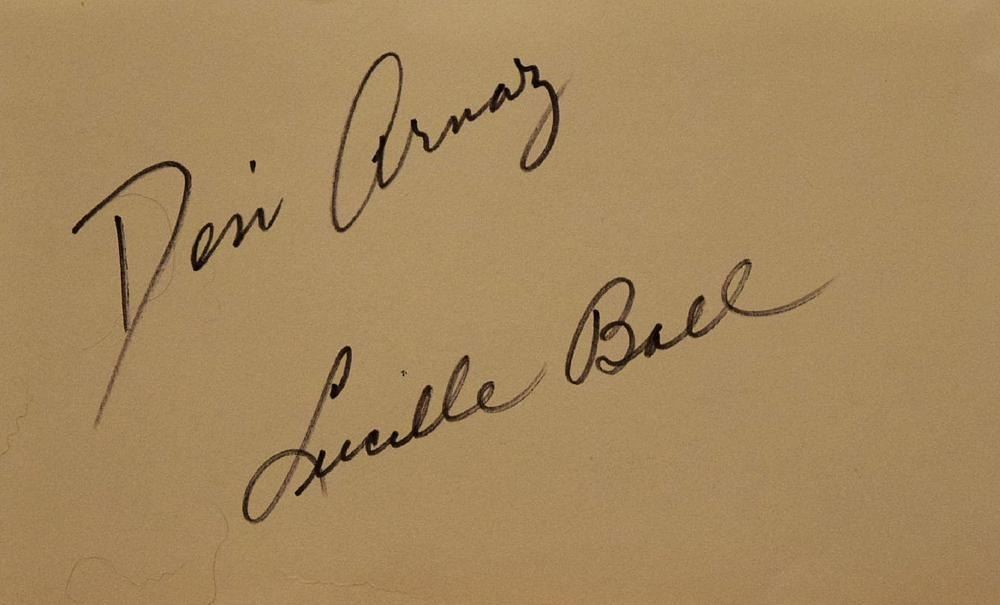 Desi Arnaz
Lucille Ball